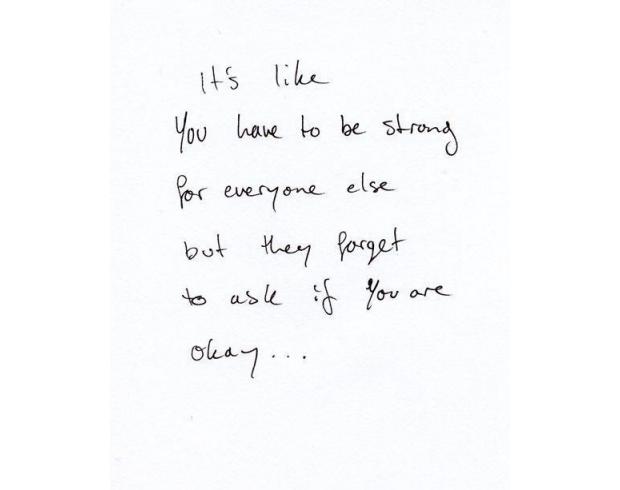 It's like
You have to be strong
for everyone else
but they forget
to ask if you are
okay...